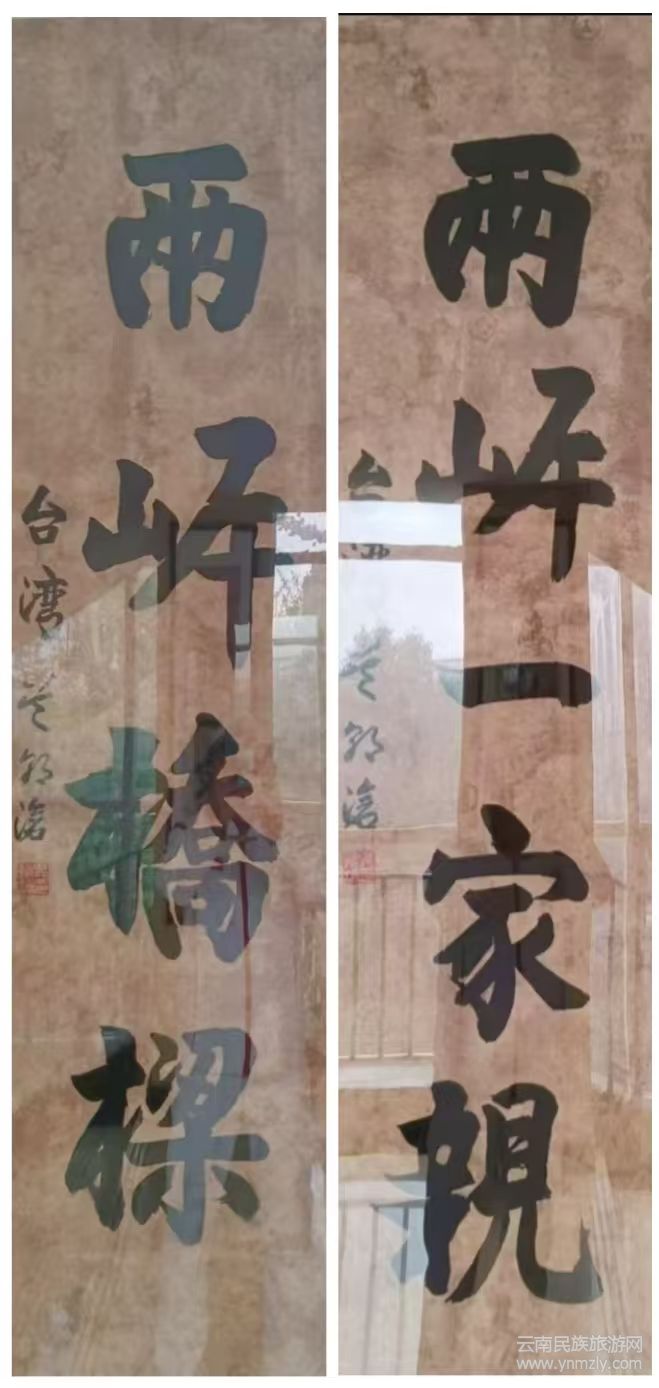 兩岸橋樑
台湾
兩岸一家親
台湾
云南民族旅游网
www.ynmzly.com